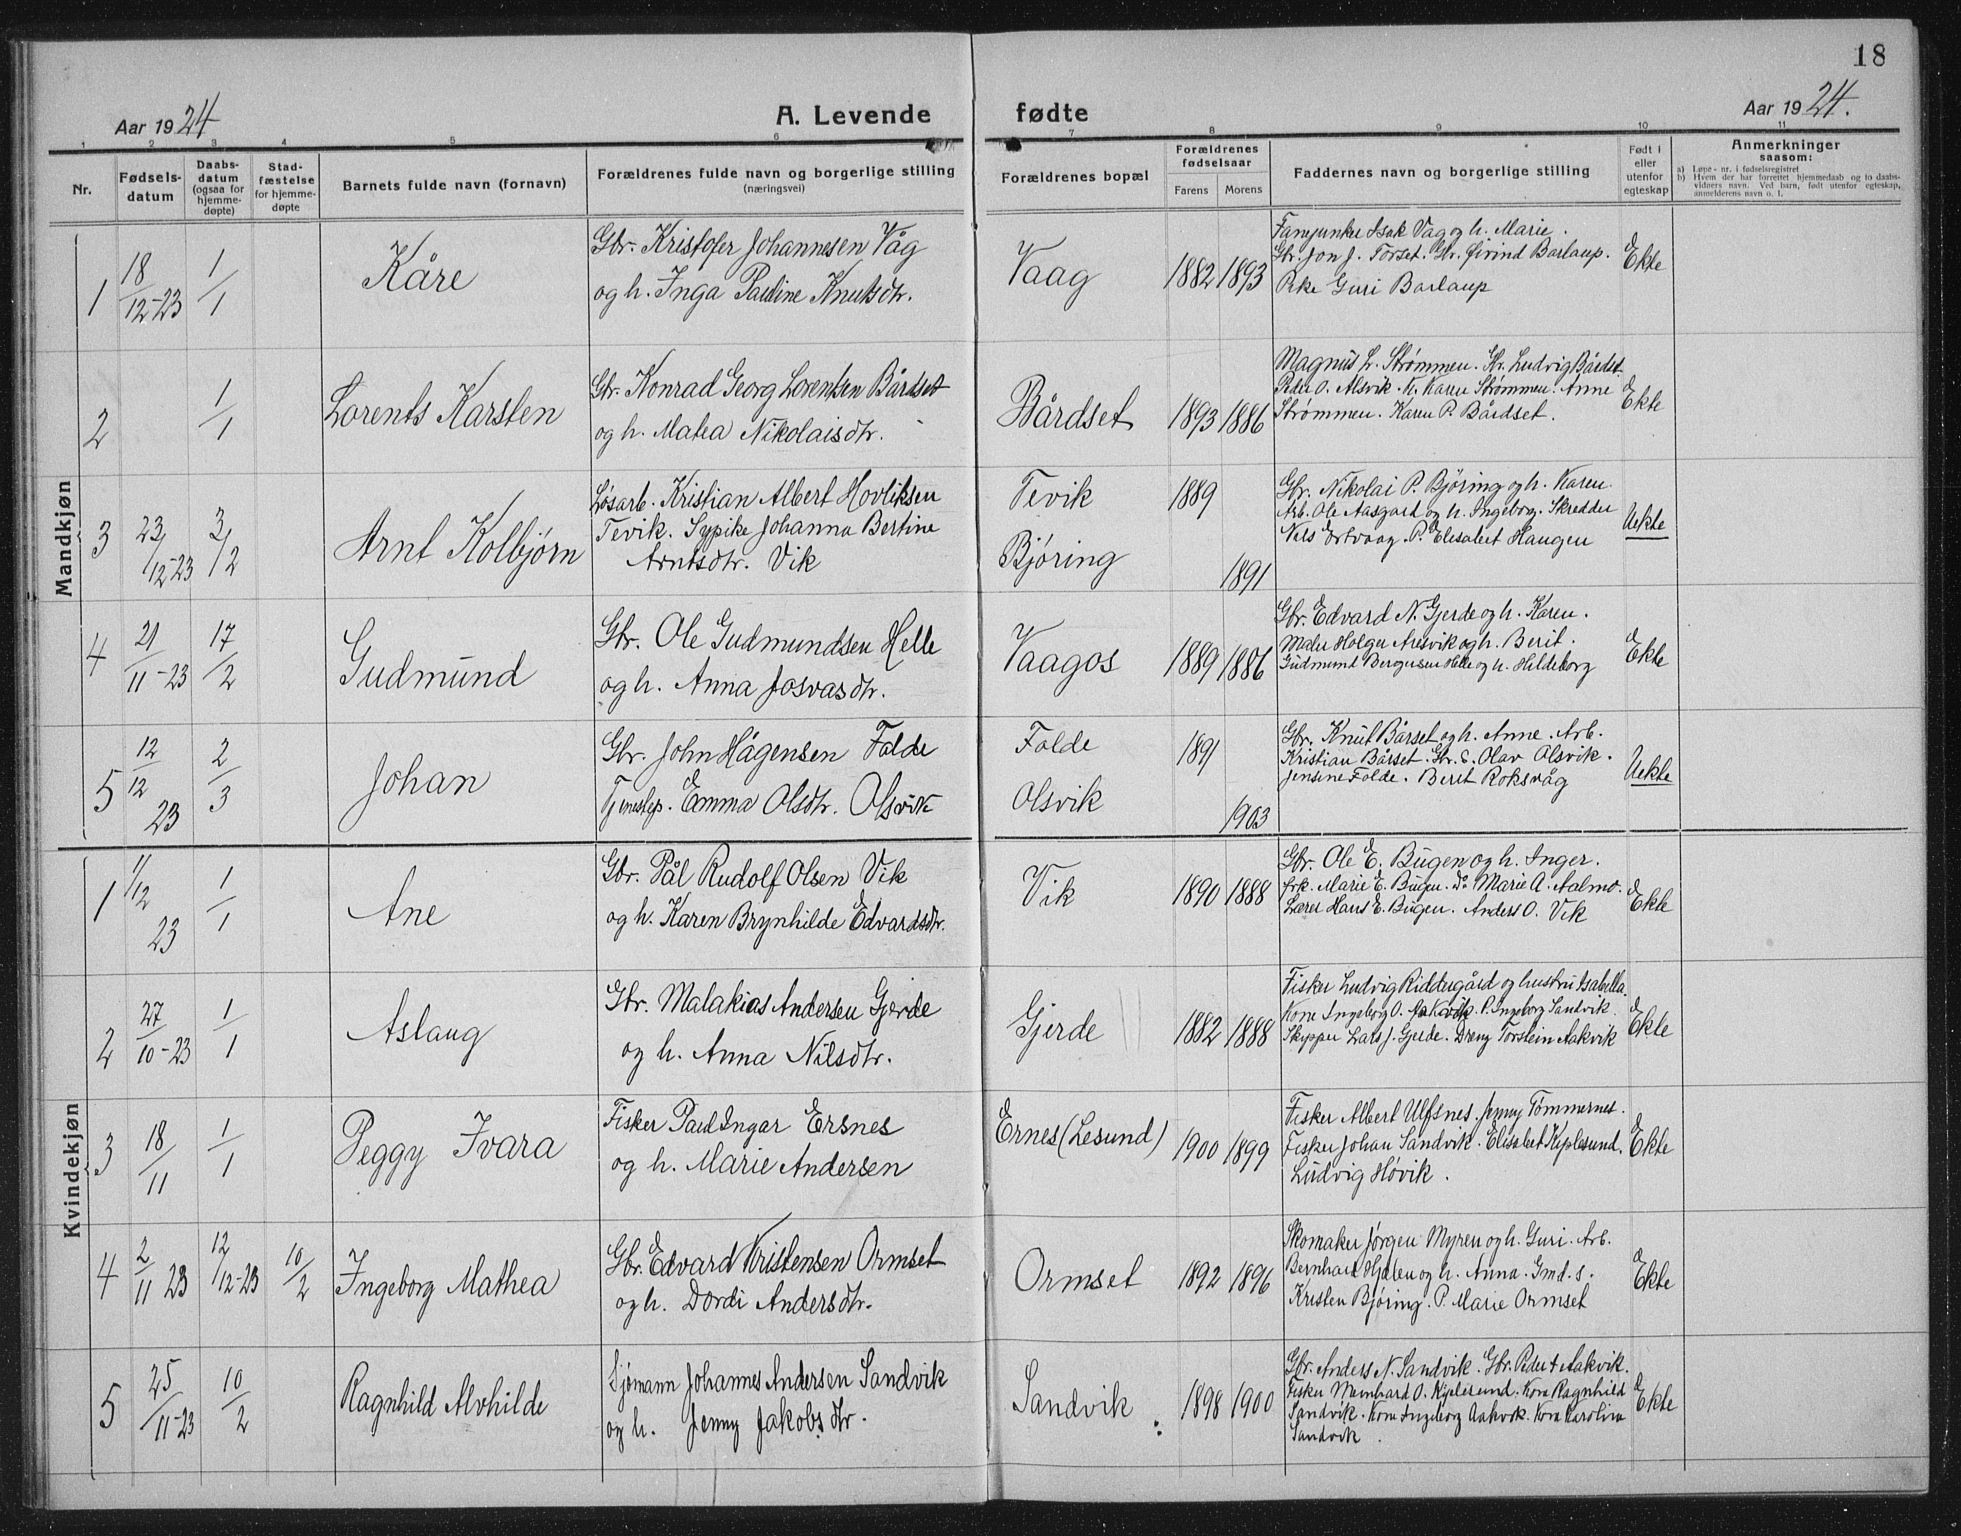 18
Aar 1924
A. Levende fødte
Aar 1924.
1 2 3 4 5 6 7 8 9 10 11
Nr.
Fødsels-
datum
Daabs-
datum
(ogsaa for
hjemme-
døpte)
Stad-
fæstelse
for hjemme-
døpte
Barnets fulde navn (fornavn)
Forældrenes fulde navn og borgerlige stilling
(næringsvei)
Forældrenes bopæl
Forældrenes
fødselsaar
Farens Morens
Faddernes navn og borgerlige stilling
Født i
eller
utenfor
egteskap
Anmerkninger
saasom:
a) Løpe-nr. i fødselsregistret
b) Hvem der har forrettet hjemmedaab og to daabs-
vidners navn. Ved barn, født utenfor egteskap,
anmelderens navn o. l.
Mandkjøn
1 18/12-23 1/1 Kåre
Gbr. Kristofer Johannesen Våg
og h. Inga Pauline Knutsdtr.
Vaag 1882 1893
Fanejunker Isak Vag og h. Marie.
Gbr. Jon J. Torset. Gbr. Øivind Barlaup.
Pike Guri Barlaup
Ekte
2 1/1 Lorents Karsten
Gbr. Konrad Georg Lorentsen Bårdset
og h. Matea Nikolaisdtr.
Bårdset 1893 1886
Magnus L. Strømmen. Gbr. Ludvig Bårdset.
Peder O. Alsvik. K. Karen Strømmen. Anne
Strømmen. Karen P. Bårdset.
Ekte
3 23/12-23 3/2 Arnt Kolbjørn
Løsarb. Kristian Albert Hovliksen
Tevik. Sypike Johanna Bertine
Arntsdtr. Vik
Tevik 1889
Bjøring 1891
Gbr. Nikolai P. Bjøring og h. Karen.
Arb. Ole Aasgard og h. Ingeborg. Skredder
Nils Ertvaag. P. Elisabet Haugen
Uekte
4 21/11-23 17/2 Gudmund
Gbr. Ole Gudmundsen Helle
og h. Anna Josvasdtr.
Vaagos 1889 1886
Gbr. Edvard N. Gjerde og h. Karen.
Maler Holger Aresvik og h. Berit.
Gudmund Bergersen Helle og h. Hildeborg
Ekte
5 12/12 23 2/3 Johan
Gbr. John Hågensen Folde
Tjenestep. Emma Olsdtr. Olsvik
Folde 1891
Olsvik 1903
Gbr. Knut Bårset og h. Anne. Arb.
Kristian Bårset. Gbr. S. Olav Olsvik.
Jensine Folde. Berit Roksvåg
Uekte
Kvindekjøn
1 1/12 23 1/1 Ane
Gbr. Pål Rudolf Olsen Vik
og h. Karen Brynhilde Edvardsdtr.
Vik 1890 1888
Gbr. Ole E. Bugen og h. Inger.
Frk. Marie E. Bugen. Do Marie A. Aalmo.
Lærer Hans E. Bugen. Anders O. Vik
Ekte
2 27/10-23 1/1 Aslaug
Gbr. Malakias Andersen Gjerde
og h. Anna Nilsdtr.
Gjerde 1882 1888
Fisker Ludvig Riddergård og hustru Isabella.
Kone Ingeborg O. Aakvik. P. Ingeborg Sandvik.
Skipper Lars J. Gjerde. Dreng Torstein Aakvik
Ekte
3 18/11 1/1 Peggy Ivara
Fisker Paul Ingar Ersnes
og h. Marie Andersen
Ernes (Lesund) 1900 1899
Fisker Albert Ulfsnes. Jenny Tømmernes.
Fisker Johan Sandvik. Elisabet Kiplesund.
Ludvig Høvik.
Ekte
4 2/11 23 12/12-23 10/2 Ingeborg Mathea
Gbr. Edvard Kristensen Ormset
og h. Dordi Andersdtr.
Ormset 1892 1896
Skomaker Jørgen Myren og h. Guri. Arb.
Bernhard Hjelen og h. Anna. Gmd. s.
Kristen Bjøring. P. Marie Ormset
Ekte
5 25/11-23 10/2 Ragnhild Alvhilde
Sjømann Johannes Andersen Sandvik
og h. Jenny Jakobsdtr.
Sandvik 1898 1900
Gbr. Anders N. Sandvik. Gbr. Peder Aakvik.
Fisker Meinhard O. Kiplesund. Kone Ragnhild
Sandvik. Kone Ingeborg Aakvik. Kone Karoline
Sandvik.
Ekte